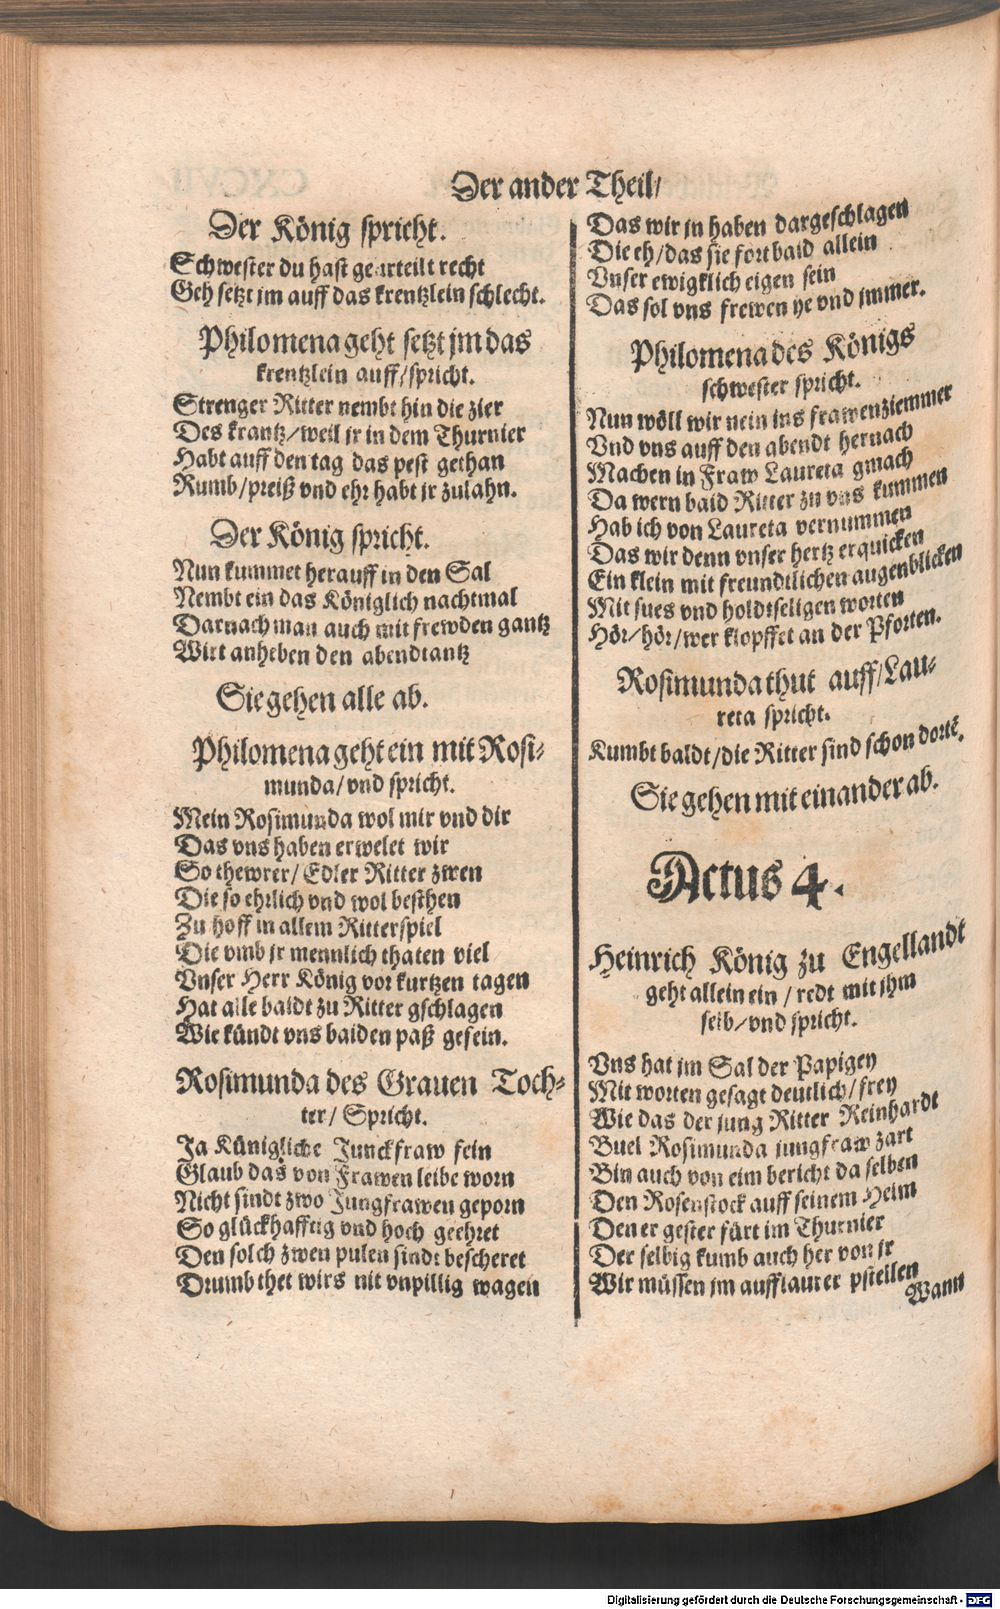 Der ander Theil/
Der König spricht.
Schwester du hast geurteilt recht
Geh setzt jm auff das krentzlein schlecht.
Philomena geht setzt jm das
krentzlein auff/spricht.
Strenger Ritter nembt hin die zier
Des krantz/weil jr in dem Thurnier
Habt auff den tag das pest gethan
Rumb/preiß vnd ehr habt jr zulahn.
Der König spricht.
Nun kummet herauff in den Sal
Nembt ein das Königlich nachtmal
Darnach man auch mit frewden gantz
Wirt anheben den abendtantz
Sie gehen alle ab.
Philomena geht ein mit Rosi-
munda/vnd spricht.
Mein Rosimunda wol mir vnd dir
Das vns haben erwelet wir
So thewrer/Edler Ritter zwen
Die so ehrlich vnd wol besthen
Zu hoff in allem Ritterspiel
Die vmb jr mennlich thaten viel
Vnser Herr König vor kurtzen tagen
Hat alle baldt zu Ritter gschlagen
Wie kündt vns baiden paß gesein.
Rosimunda des Grauen Toch-
ter/Spricht.
Ja Künigliche Junckfraw fein
Glaub das von Frawen leibe worn
Nicht sindt zwo Jungfrawen geporn
So glückhafftig vnd hoch geehret
Den solch zwen pulen sindt bescheret
Drumb thet wirs nit vnpillig wagen
Das wir jn haben dargeschlagen
Die eh/das sie fort baid allein
Vnser ewigklich eigen sein
Das sol vns frewen ye vnd jmmer.
Philomena des Königs
schwester spricht.
Nun wöll wir nein ins frawenziemmer
Vnd vns auff den abendt hernach
Machen in Fraw Laureta gmach
Da wern baid Ritter zu vns kummen
Hab ich von Laureta vernummen
Das wir denn vnser hertz erquicken
Ein klein mit freundtlichen augenblicken
Mit sues vnd holdtseligen worten
Hör/hör/wer klopffet an der Pforten.
Rosimunda thut auff/Lau-
reta spricht.
Kumbt baldt/die Ritter sind schon dortē.
Sie gehen mit einander ab.
Actus 4.
Heinrich König zu Engellandt
geht allein ein/redt mit jhm
selb/vnd spricht.
Vns hat im Sal der Papigey
Mit worten gesagt deutlich/frey
Wie das der jung Ritter Reinhardt
Buel Rosimunda jungfraw zart
Bin auch von eim bericht da selben
Den Rosenstock auff seinem Helm
Den er gester fürt im Thurnier
Der selbig kumb auch her von jr
Wir müssen jm aufflaurer pstellen
Wann
Digitalisierung gefördert durch die Deutsche Forschungsgemeinschaft - DFG